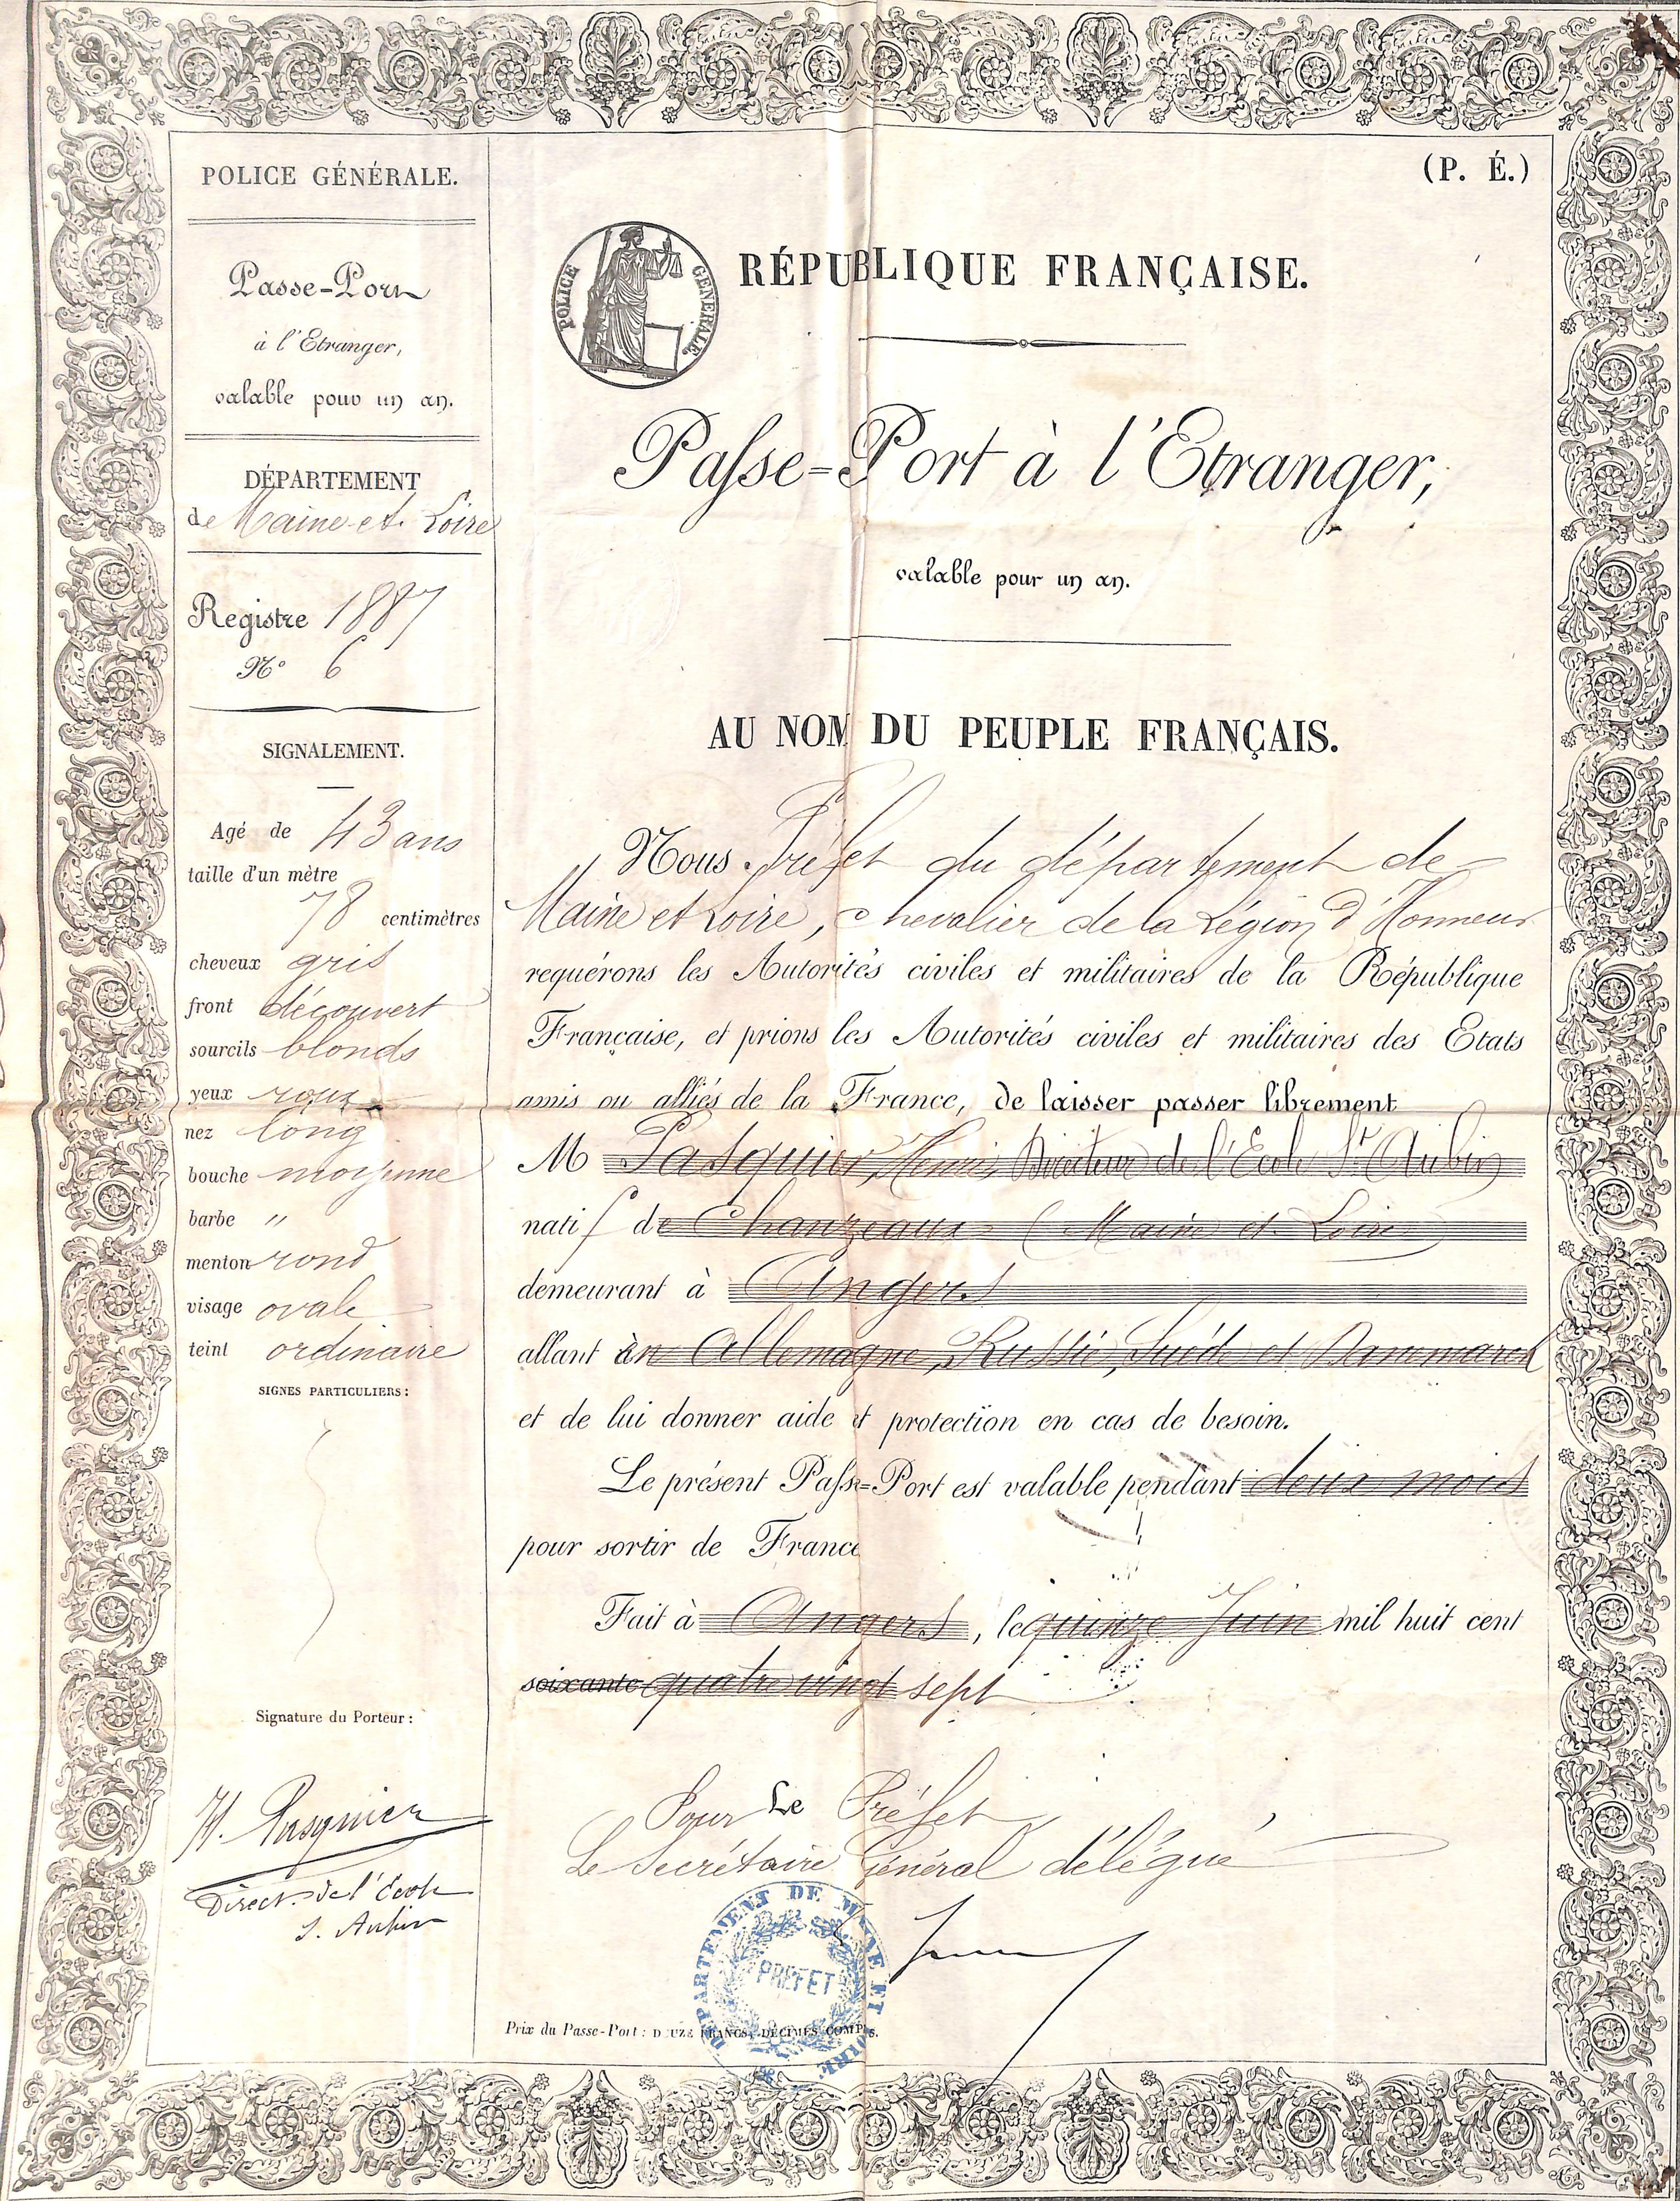 POLICE GÉNÉRALE.
Passe-Port
à l'Etranger,
valable pour un an.
DÉPARTEMENT
de Maine et Loire
Registre 1887
N° 6
SIGNALEMENT.
Agé de 43 ans
taille d'un mètre
78 centimètres
cheveux gris
front découvert
sourcils blonds
yeux roux
nez long
bouche moyenne
barbe "
menton rond
visage ovale
teint ordinaire
SIGNES PARTICULIERS:
Signature du Porteur:
H. Pasquier
Direct. de l'Ecole
S. Aubin
(P. É.)
POLICE GENERALE.
RÉPUBLIQUE FRANÇAISE.
Passe-Port à l'Etranger,
valable pour un an.
AU NOM DU PEUPLE FRANÇAIS.
Nous Préfet du département de
Maine et Loire, chevalier de la Légion d'Honneur
requérons les Autorités civiles et militaires de la République
Française, et prions les Autorités civiles et militaires des Etats
amis ou alliés de la France, de laisser passer librement
M Pasquier, Henri, Directeur de l'Ecole St Aubin
natif de Chanzeaux (Maine et Loire)
demeurant à Angers
allant en Allemagne, Russie, Suéde et Dannemarck
et de lui donner aide et protection en cas de besoin.
Le présent Passe-Port est valable pendant deux mois
pour sortir de France
Fait à Angers, le quinze Juin mil huit cent
soixante quatre vingt sept
Pour Le Préfet
Le Secrétaire Général délégué
DEPARTEMENT DE MAINE ET LOIRE
PREFET
Prix du Passe-Port: DOUZE FRANCS, DÉCIMES COMPIS.